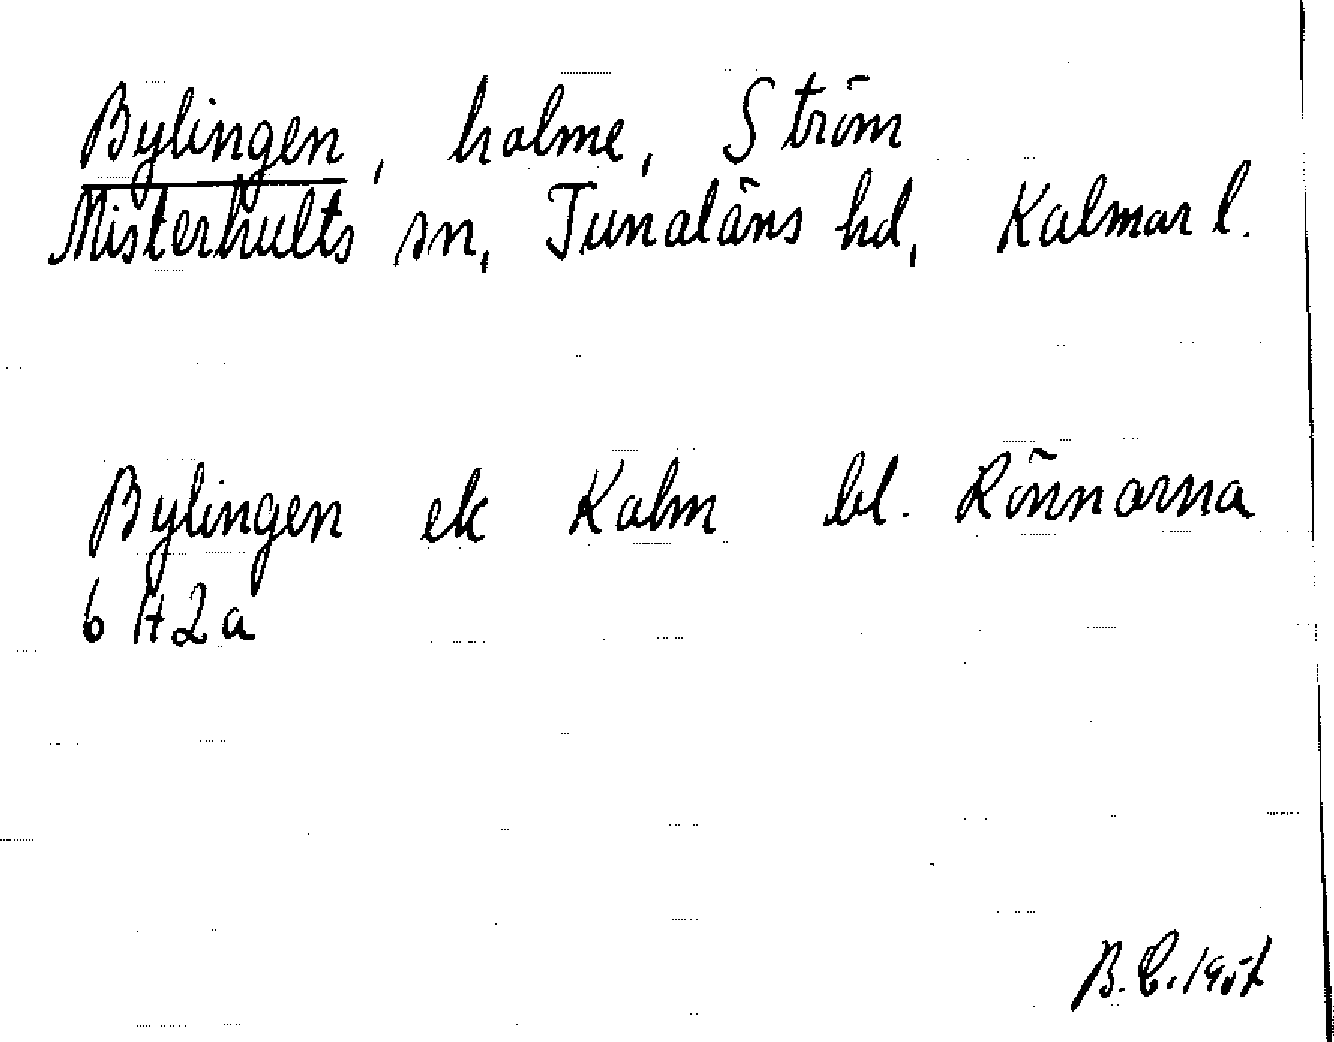 Bylingen, holme, Ström
Misterhults sn, Tunaläns hd, Kalmar l.
Bylingen ek Kalm bl. Rönnarna
6 H 2 a
B. C. 1957